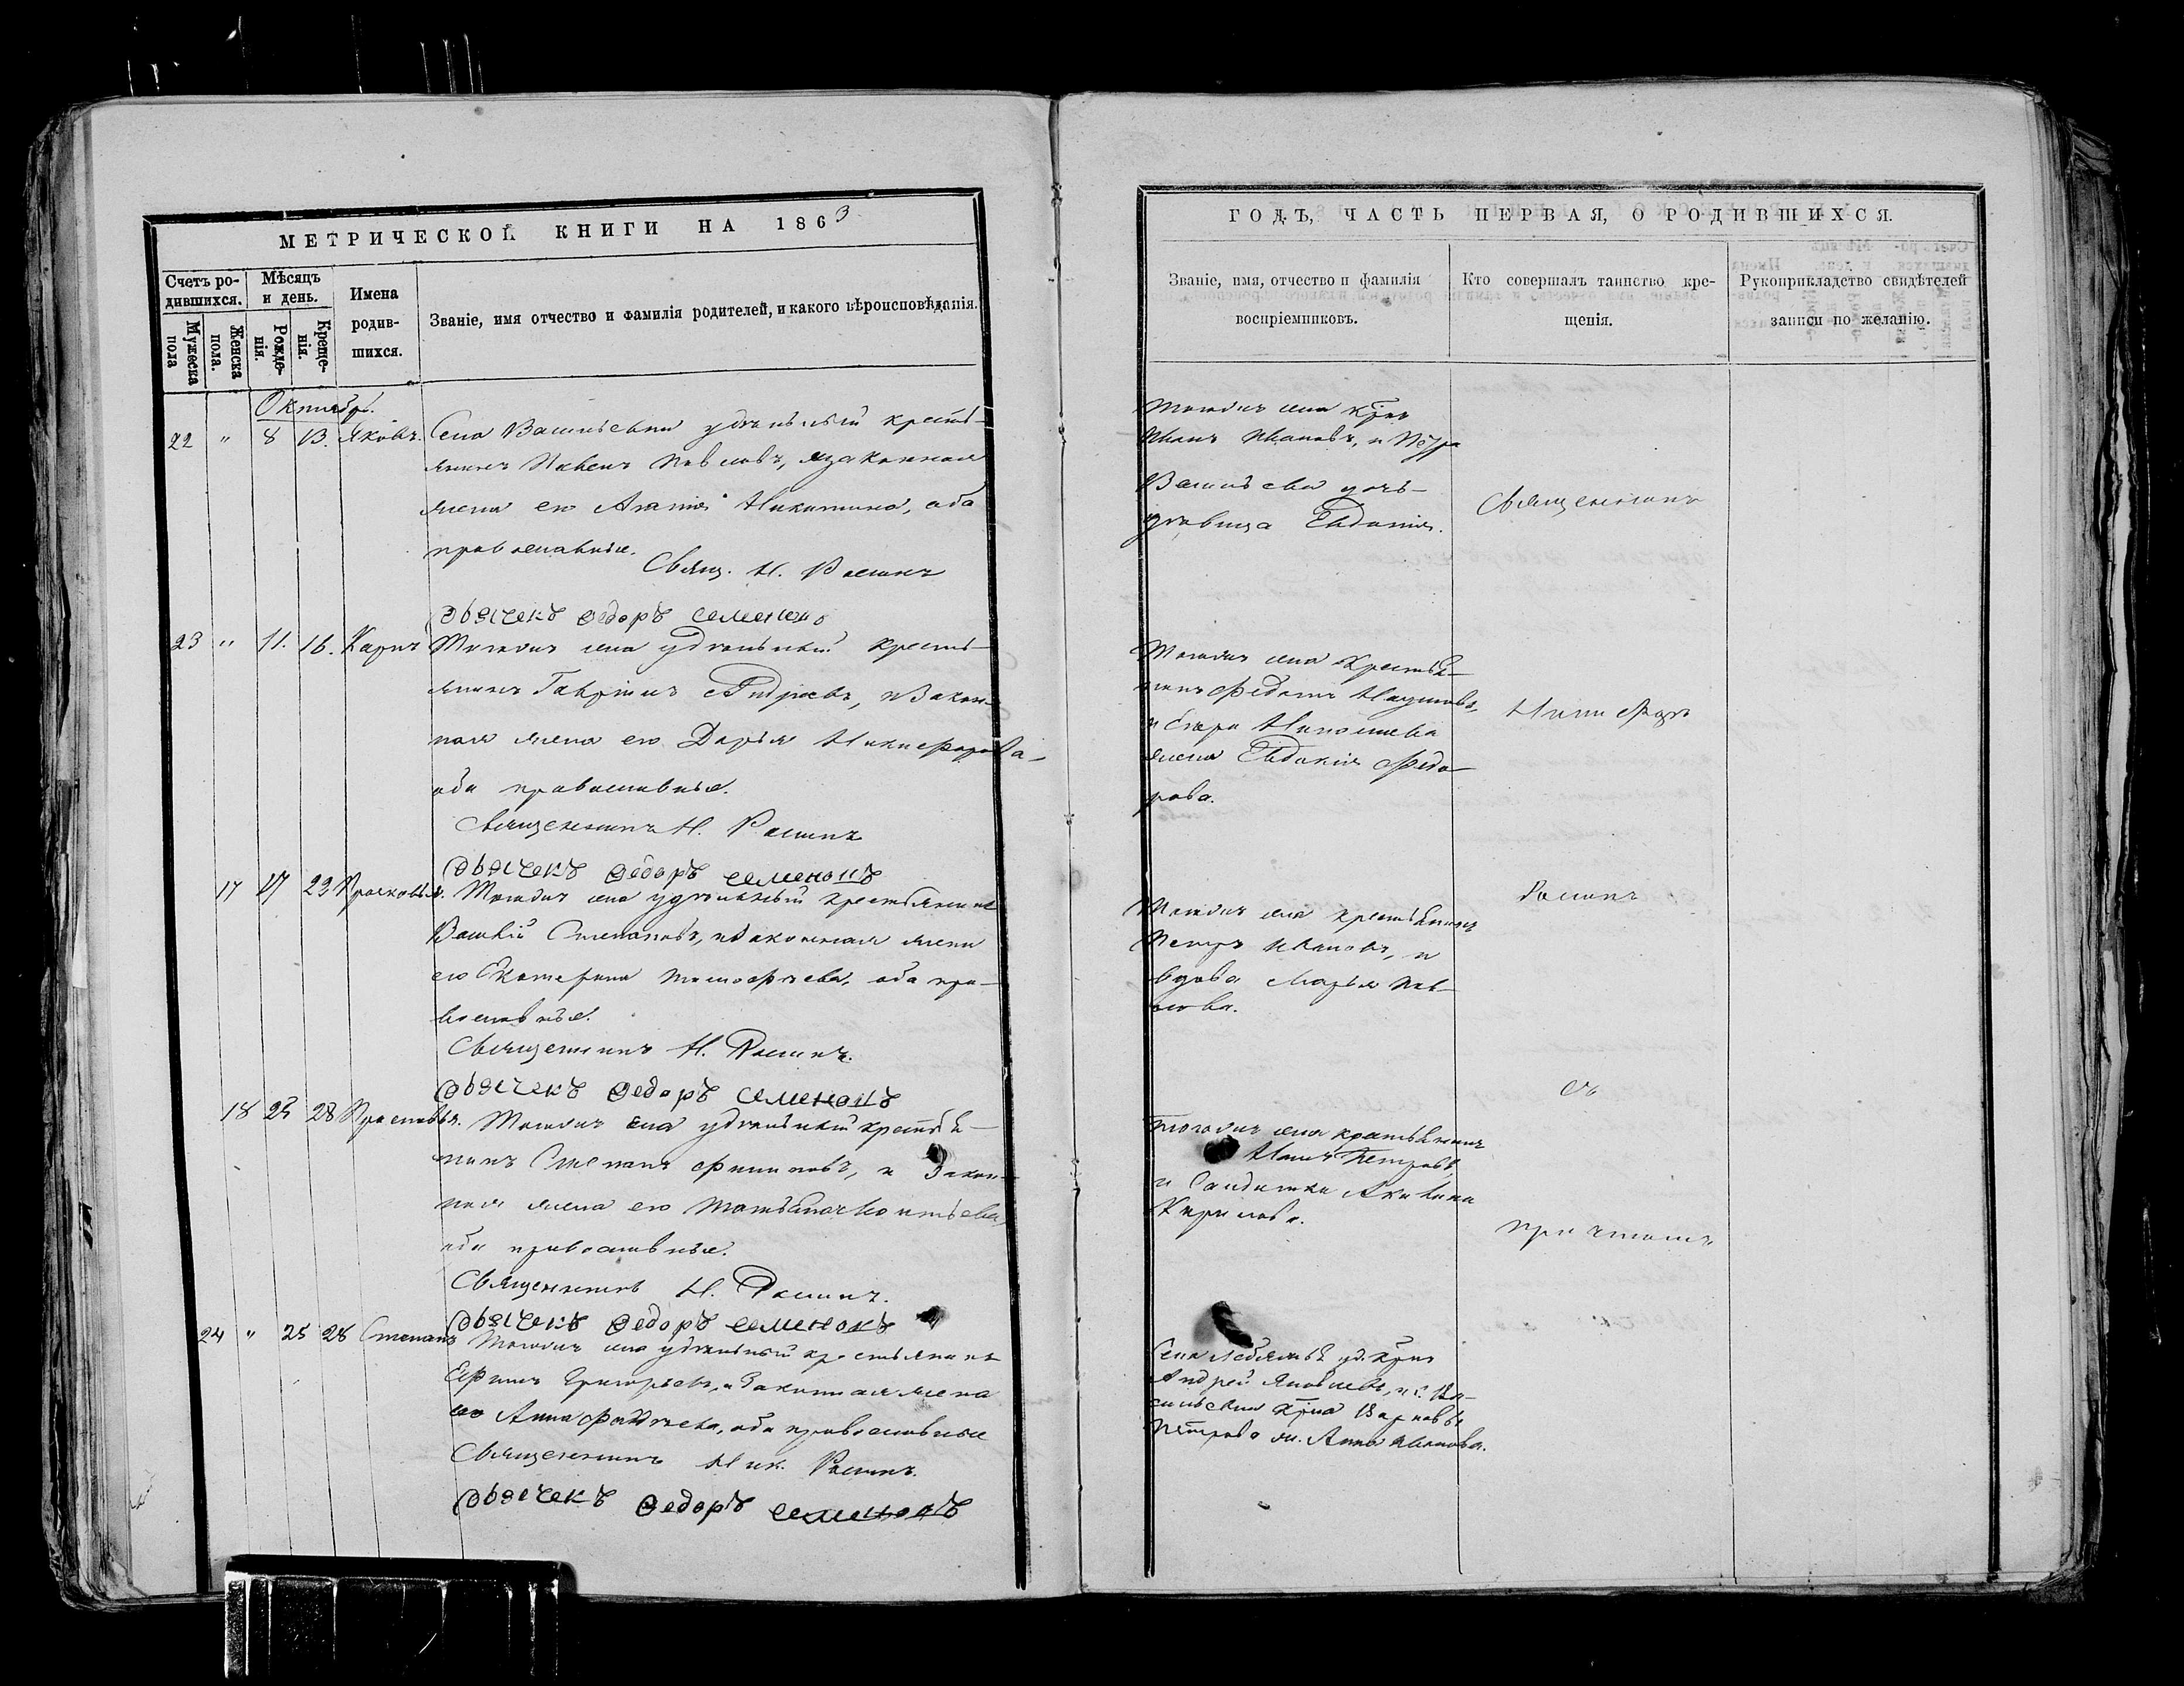 МЕТРИЧЕСКОЙ КНИГИ НА 1863
Счетъ ро-
дившихся.
Мѣсяцъ
и день.
Имена
родив-
шихся.
Званіе, имя отчество и фамилія родителей, и какого вѣроисповѣданія.
Мужеска
пола
Женска
пола.
Рожде-
нія.
Креще-
нія.
Октябрь.
22 " 8 13. Яковъ. Села Васильевки удѣльный кресть-
янинъ Павелъ Павловъ, и законная
жена его Агапія Никитина, оба
православные.
Свящ. Н. Росинъ
Дьячекъ Ѳедоръ Семеновъ
23 " 11. 16. Карпъ Тогожъ села удѣльный кресть-
янинъ Гаврилъ Андреевъ, и закон-
ная жена его Дарья Никифорова
оба православные.
Священникъ Н. Росинъ
Дьячекъ Ѳедоръ Семеновъ
17 17 23 Прасковья. Тогожъ села удѣльный крестьянинъ
Василій Степановъ, и законная жена
его Екатерина Тимофѣева, оба пра-
вославные.
Священникъ Н. Росинъ.
Дьячекъ Ѳедоръ Семеновъ
18 23 28 Прасковья. Тогожъ села удѣльный крестья-
нинъ Степанъ Филиповъ, и закон-
ная жена его Татьяна
оба православные.
Священникъ Н. Росинъ.
Дьячекъ Ѳедоръ Семеновъ
24 " 25 28 Степанъ Тогожъ села удѣльный крестьянинъ
Ефимъ Григорьевъ, и законная жена
его Анна Фаддѣева, оба православные
Священникъ Ник. Росинъ.
Дьячекъ Ѳедоръ Семеновъ
ГОДЪ, ЧАСТЬ ПЕРВАЯ, О РОДИВШИХСЯ.
Званіе, имя, отчество и фамилія
воспріемниковъ.
Кто совершалъ таинство кре-
щенія.
Рукоприкладство свидѣтелей
записи по желанію.
Тогожъ села крнъ
Иванъ Ивановъ, и Петра
Васильева дочь
дѣвица Евдокія.
Священникъ
Тогожъ села крестья-
нинъ Федотъ Наумовъ,
и Егора Николаева
жена Евдокія Федо-
рова.
Никифоръ
Тогожъ села крестьянинъ
Петръ Ивановъ, и
вдова Марья Пав-
лова.
Росинъ
съ
Тогожъ села крестьянинъ
Петровъ,
и Солдатка Акулина
Кирилова.
причтомъ
Села уд. крнъ
Андрей Яковлевъ, и с. Ва-
сильевки крна
Петрова ж. Анна Иванова.